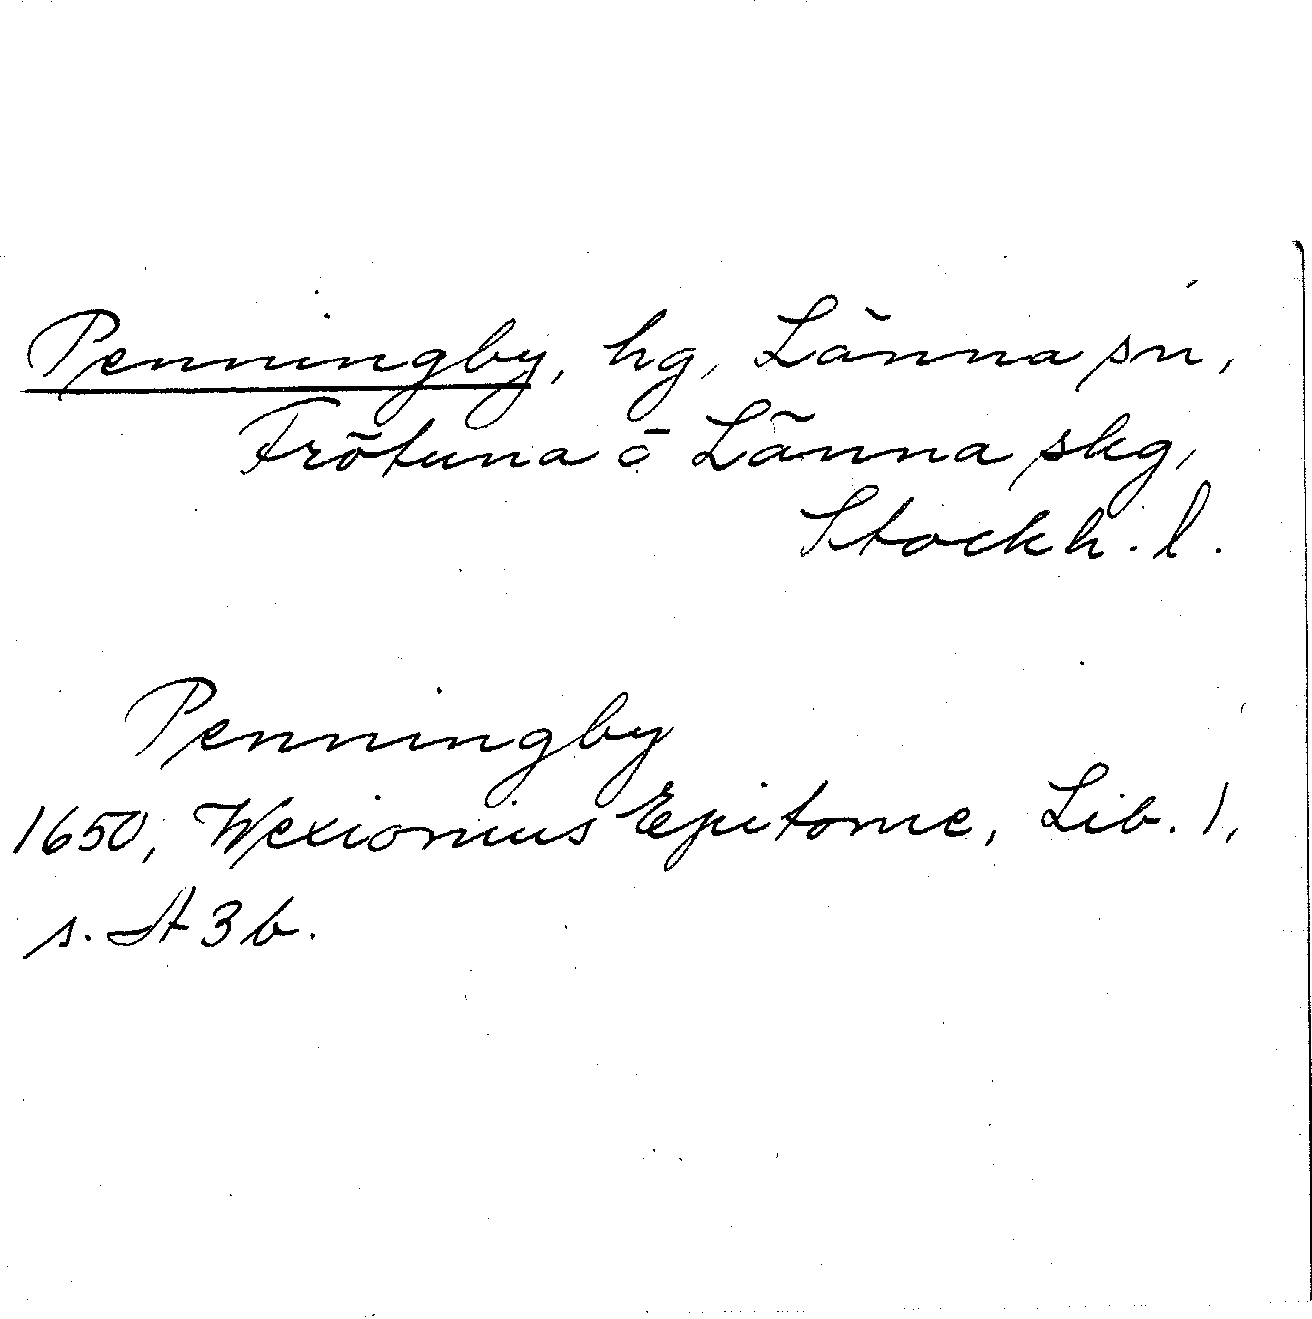 Penningby, hg, Länna sn,
Frötuna o Länna skg,
Stockh. l.
Penningby
1650, Wexionius Epitome, Lib. 1,
s. A 3 b.